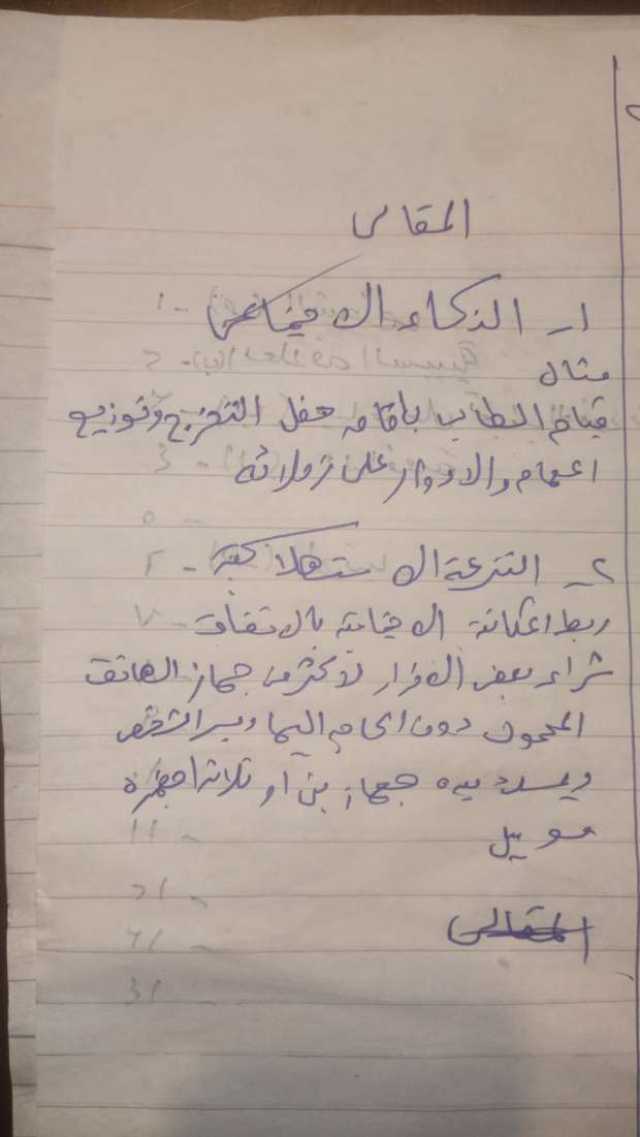 المقالى
١ - الذكاء الاجتماعى
مثال
قيام الطالب باقامه حفل التخرج وتوزيع
المهام والادوار على زملائه
٢ - النزعة الاستهلاكية
ربط المكانة الاجتماعية بالانفاق
شراء بعض الافراد لاكثر من جهاز الهاتف
المحمول دون الحاجه اليها ويسير الشخص
وبيده جهازين او ثلاثة اجهزه
موبيل
المقالى